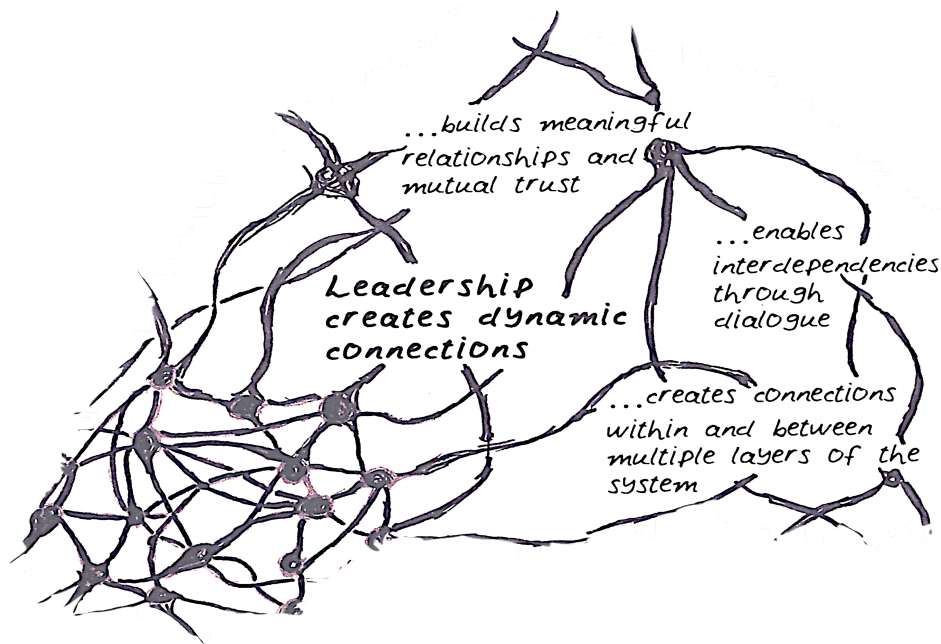 ...builds meaningful
relationships and
mutual trust
...enables
interdependencies
through
dialogue
Leadership
creates dynamic
connections
...creates connections
within and between
multiple layers of the
system